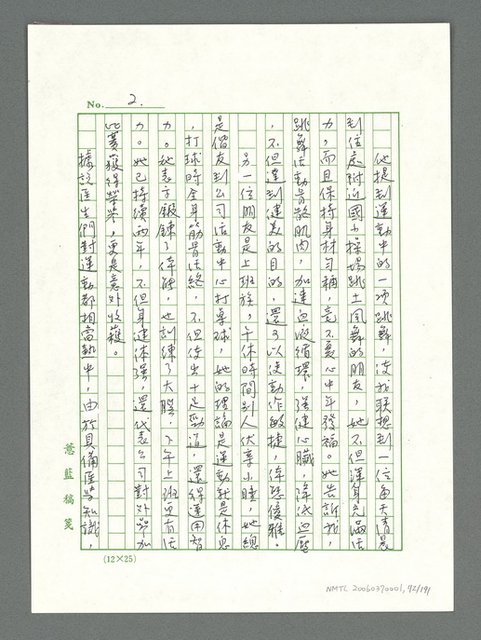 No. 2.
他提到運動中的一項跳舞，使我聯想到一位每天清晨
到住處附近國小操場跳土風舞的朋友，她不但渾身充滿活
力，而且保持身材勻稱，毫不憂心中年發福。她告訴我，
跳舞活動骨骸肌肉，加速血液循環，強健心臟，降低血壓
，不但達到健美的目的，還可以使動作敏捷，體態優雅。
另一位朋友是上班族，午休時間別人伏案小睡，她總
是偕友到公司活動中心打桌球，她的理論是運動就是休息
，打球時全身筋骨活絡，不但使出十足勁道，還得運用智
力。她表示鍛鍊了體能，也訓練了大腦，下午上班更有活
力。她已持續兩年，不但身健体强，還代表公司對外參加
比賽獲得榮譽，更是意外收穫。
據說醫生們對運動都相當熱中，由於具備醫學知識，
薏藍稿箋
(12×25)
NMTL 20060370001, 92/191